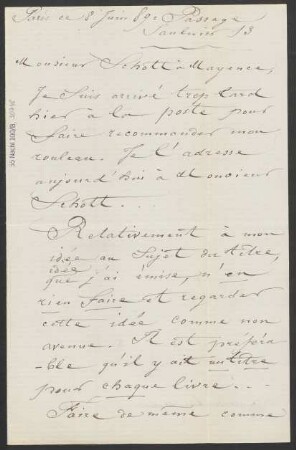 Paris ce 8 Juin 69 Passage
Saulnier 13
Monsieur Schott à Mayence,
Je suis arrivé trop tard
hier à la poste pour
faire recommander mon
rouleau. Je l'adresse
aujourd'hui à Monsieur
Schott...
Relativement à mon
idée au sujet du titre,
idée
que j'ai émise, n'en
rien faire et regarder
cette idée comme non
avenue. Il est préféra-
-ble qu'il y ait un titre
pour chaque livre...
Faire de même comme